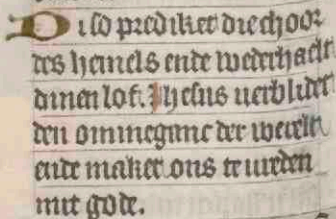 Di so prediket die choor
des hemels ende wederhaelt
dinen lof. Jhesus verblidet
den ommeganc der werelt
ende maket ons te vreden
mit gode.